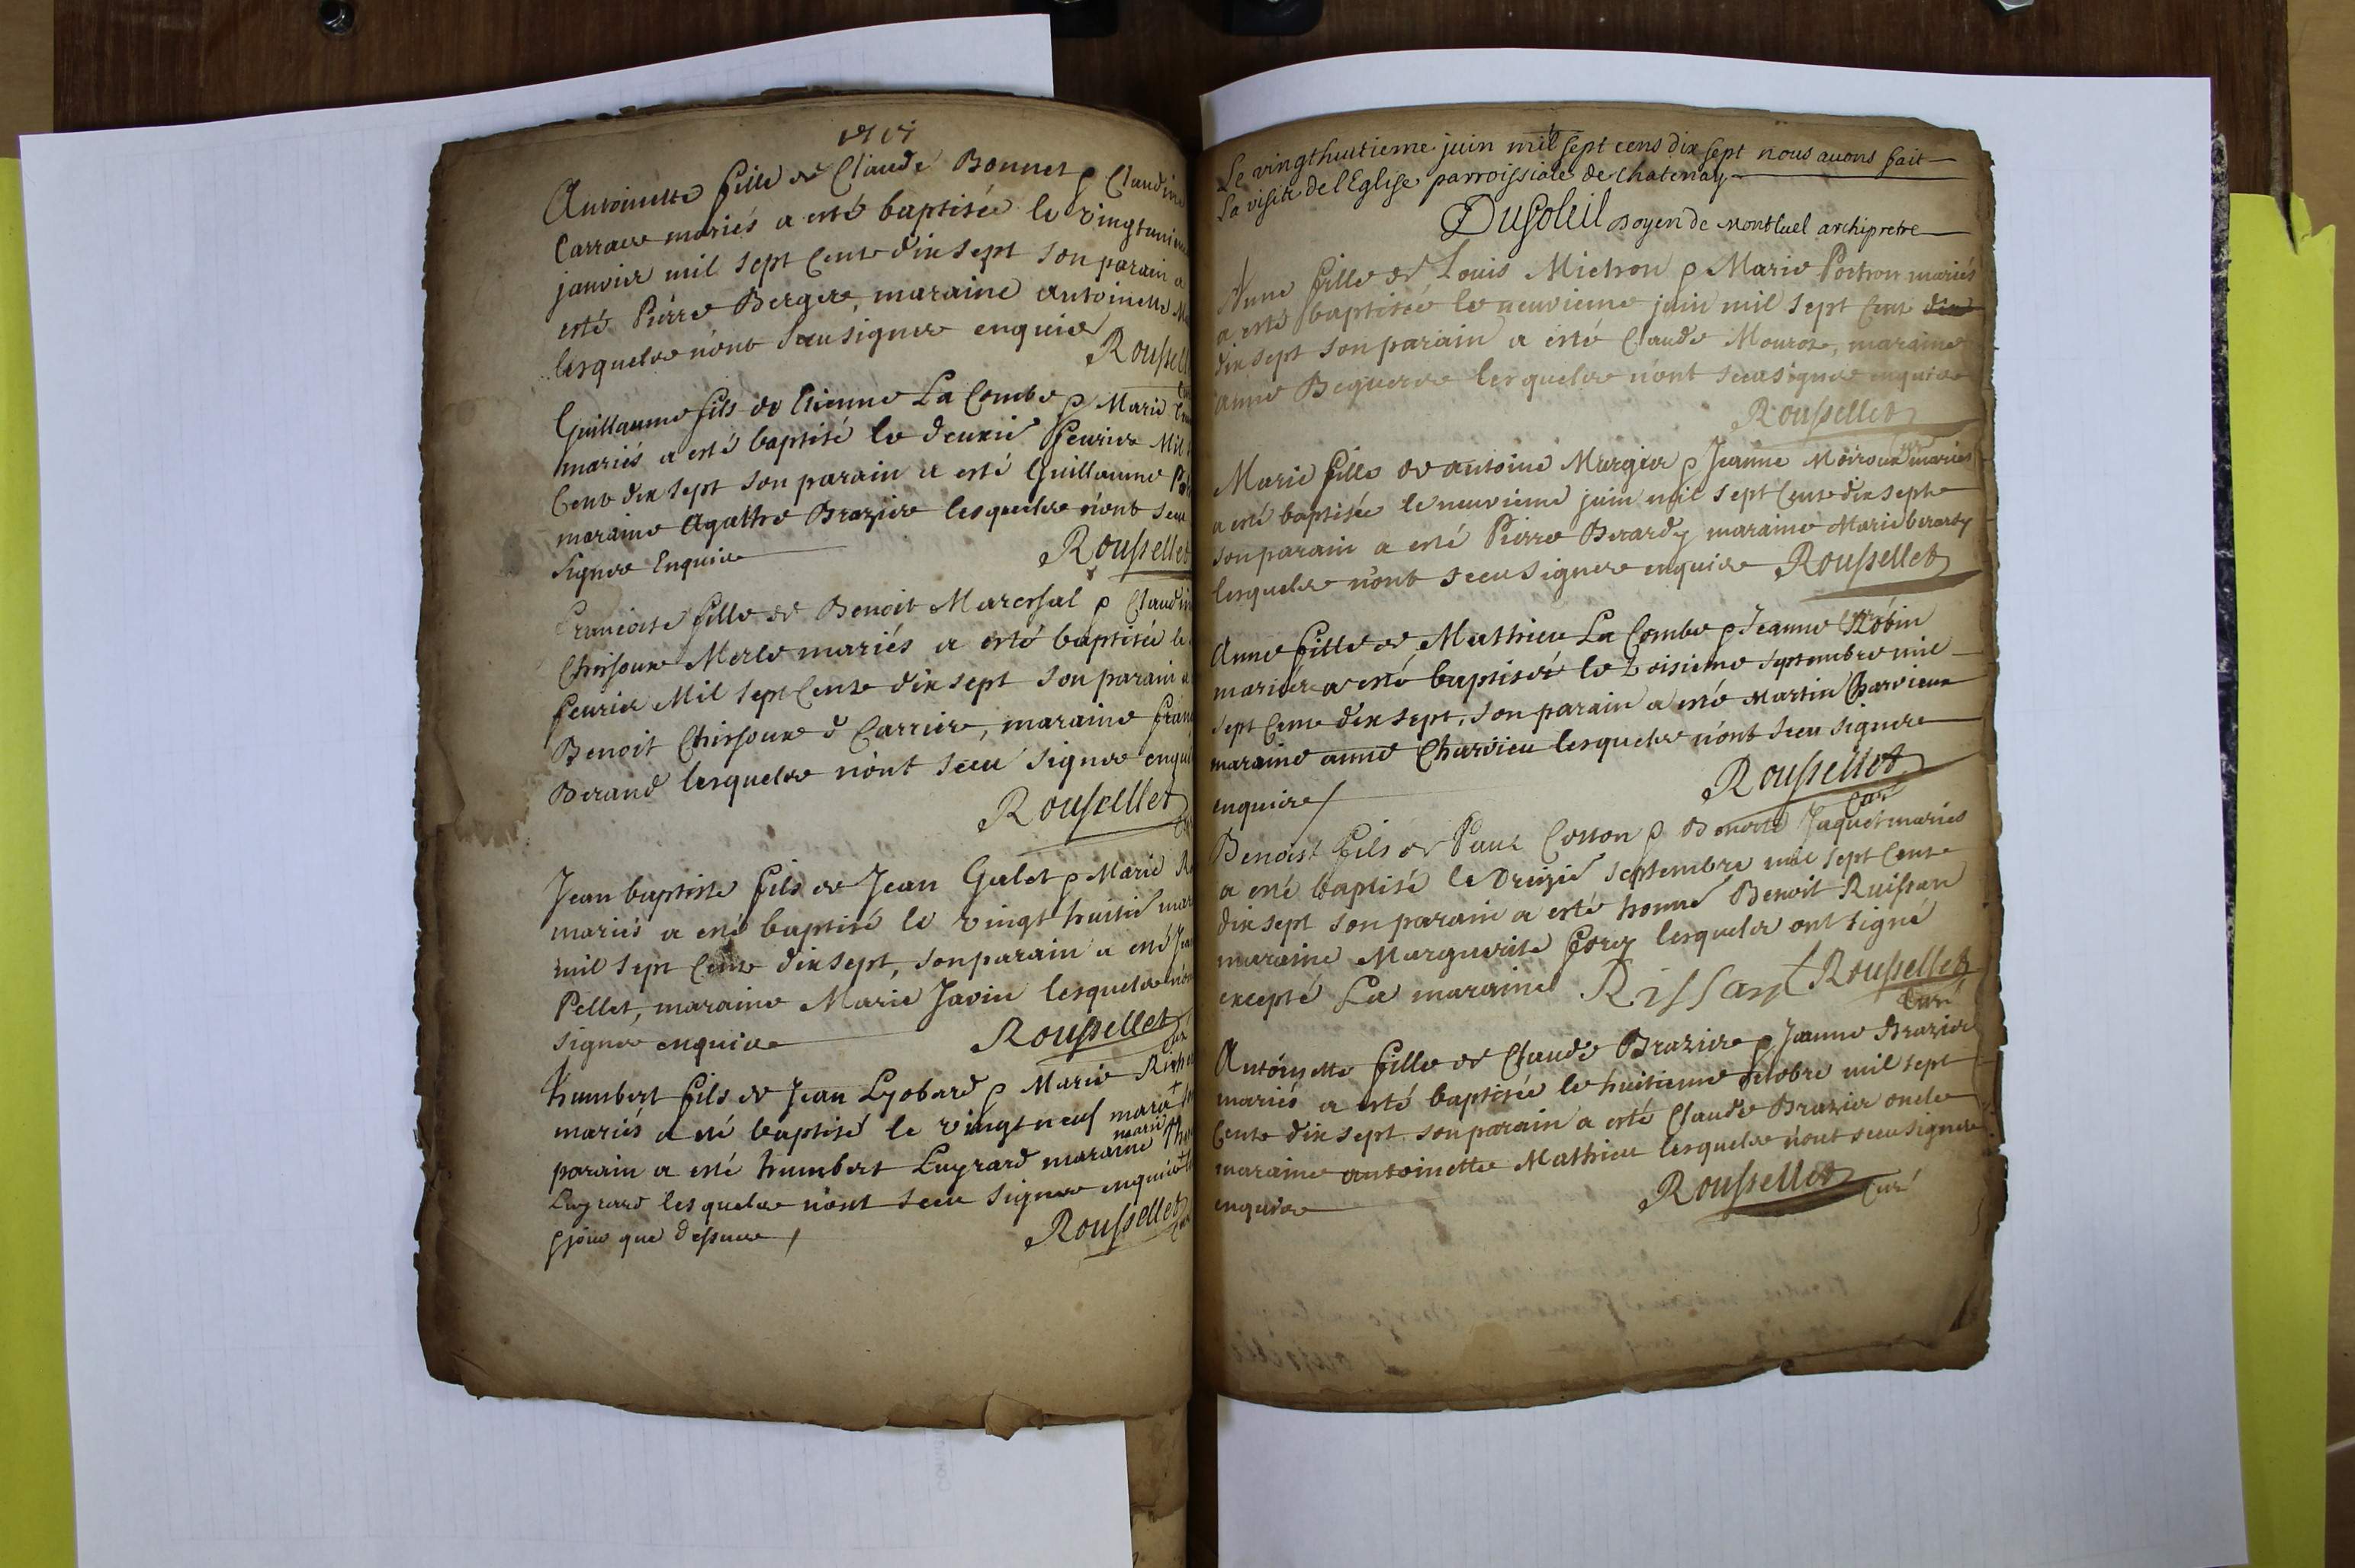 1717
Antoinette fille de Claude Bonnet & Claudine
Carraere mariés a esté baptisée le vingtunieme
janvier mil sept Cents dix sept son parain a
esté Pierre Berger, maraine antoinette
lesquels n'ont sceu signer enquis
Roussellet
Guillaume fils de Etienne La Combe & Marie
mariés a esté baptisé le deuxie feurier Mil
Cent dix sept son parain a esté Guillaume
maraine Agathe Brazier lesquels n'ont sceu
signer Enquis
Roussellet
françoise fille de Benoit Mareschal & Claudine
Chissoux Merle mariés a esté baptisée le
feurier Mil sept Cents dix sept son parain a
Benoit Chissoux d Carrier, maraine
Berand lesquels n'ont sceu signer enquis
Roussellet
Jean baptiste fils de Jean Galet & Marie
mariés a esté baptisé le vingt huitie mars
mil sept Cents dix sept, son parain a esté
Pellet, maraine Marie Javin lesquels n'ont
signer enquis
Roussellet
humbert fils de Jean Lyobard & Marie
mariés a esté baptisé le vingt neuf mars
parain a esté humbert Luyrard maraine marie
Luyrard lesquels n'ont sceu signer enquis
& jour que dessus
Roussellet
Le vingthuitieme juin mil sept cens dix sept nous auons fait
La visite de l'Eglise parroissiale de Chatenay
DuSoleil Doyen de Montluel archipretre
Anne fille de Louis Michon & Marie Pochon mariés
a esté baptisée le neuvieme juin mil sept Cent dix
dix sept son parain a esté Claude Mouroz, maraine
anne Beguerre lesquels n'ont sceu signer enquis
Roussellet
Curé
Marie fille de antoine Murgier & Jeanne Moiroux mariés
a esté baptisée le neuvieme juin mil sept Cents dix sept
son parain a esté Pierre Berardy maraine Marie berardy
lesquels n'ont sceu signer enquis Roussellet
Curé
Anne fille de Mathieu La Combe & Jeanne Robin
mariés a esté baptisée le troisieme septembre mil
sept Cents dix sept, son parain a esté Martin Charvieux
maraine anne Charvieu lesquels n'ont sceu signer
enquis
Roussellet
Curé
Benoist fils de Paul Cotton & Benoite Jaquet mariés
a esté baptisé le Onzie septembre mil sept Cents
dix sept son parain a esté honné Benoit Ruissan
maraine Marguerite forez lesquels ont signé
excepté La maraine Rissan Roussellet
Curé
Antoinette fille de Claude Brazier & Jeanne Brazier
mariés a esté baptisée le huitieme octobre mil sept
Cents dix sept son parain a esté Claude Brazier oncle
maraine antoinette Mathieu lesquels n'ont sceu signer
enquis
Roussellet Curé